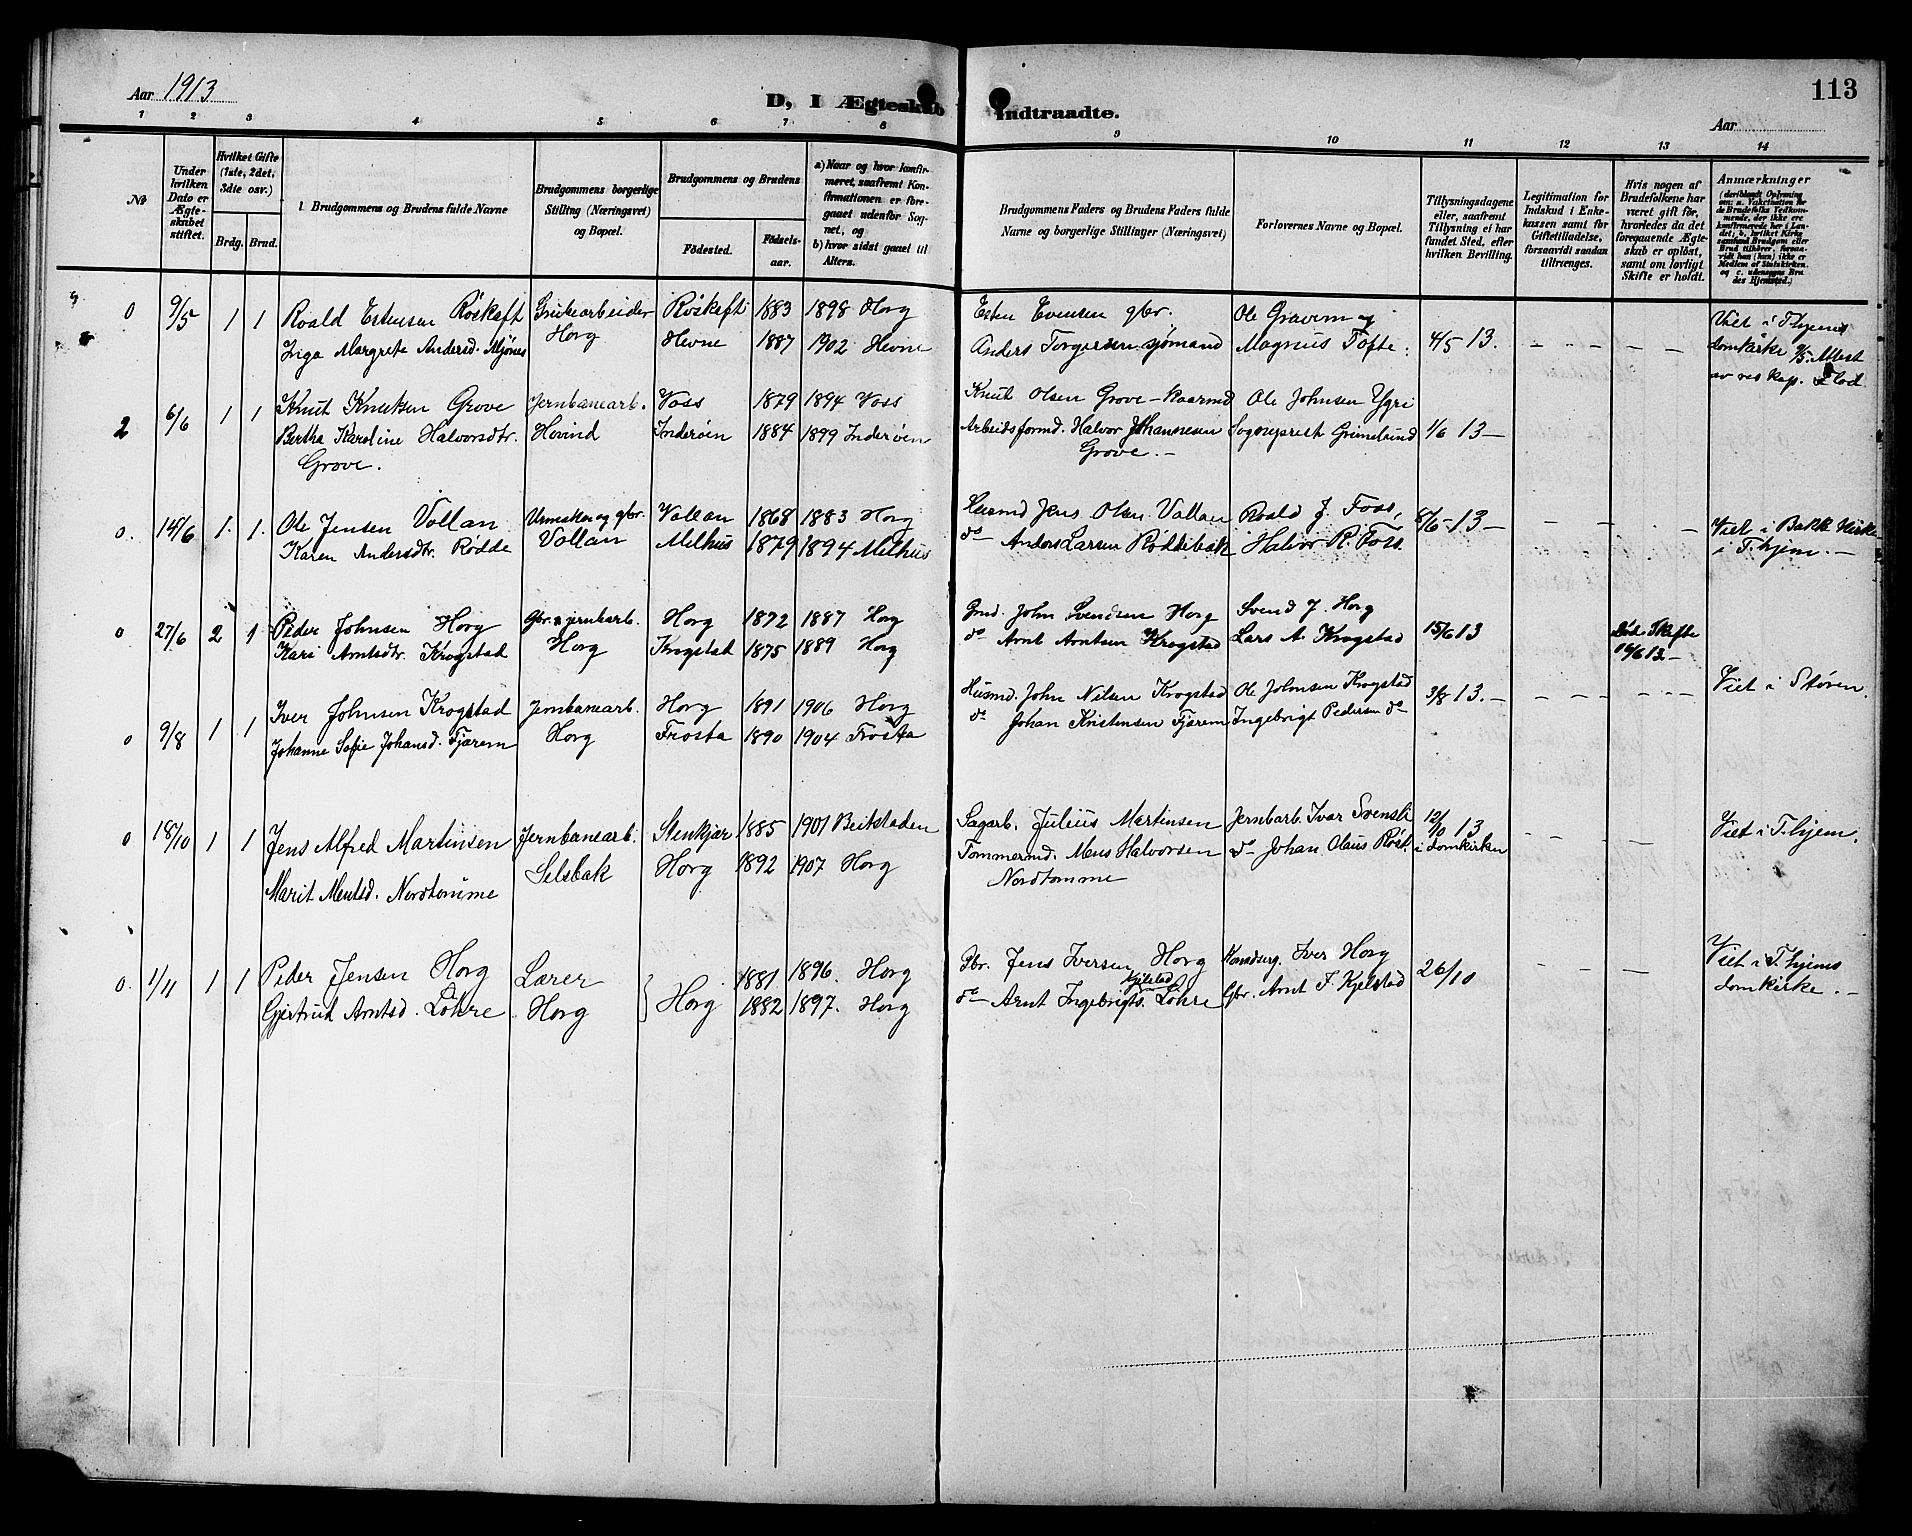 Aar 1913
D, I Ægteskab Indtraadte.
113
Aar
1 2 3 4 5 6 7 8 9 10 11 12 13 14
No
Under hvilken Dato er Ægteskabet stiftet.
Hvilket Gifte (1ste, 2det, 3die osv.)
Brdg. Brud.
Brudgommens og Brudens fulde Navne
Brudgommens borgerlige Stilling (Næringsvei) og Bopæl.
Brudgommens og Brudens
Födested. Födselsaar.
a) Naar og hvor konfirmeret, saafremt Konfirmationen er foregaaet udenfor Sognet, og
b) hvor sidst gaaet til Alters.
Brudgommens Faders og Brudens Faders fulde Navne og borgerlige Stillinger (Næringsvei)
Forlovernes Navne og Bopæl.
Tillysningsdagene eller, saafremt Tillysning ei har fundet Sted, efter hvilken Bevilling.
Legitimation for Indskud i Enkekassen samt for Giftetilladelse, forsaavidt saadan tiltrænges.
Hvis nogen af Brudefolkene har været gift för, hvorledes da det foregaaende Ægteskab er oplöst, samt om lovligt Skifte er holdt.
Anmærkninger
0 9/5 1 1 Roald Estensen Röskaft Grubearbeider Röskaft 1883 1898 Horg Esten Evensen gbr. Ole Gravem og Viet i Thjems
Inga Margrete Andersd. Mjönes Horg Hevne 1887 1902 Hevne Anders Torgersen sjömand Magnus Tofte. 4/5 13. domkirke 9/5. Attest
av res kap.
2 6/6 1 1 Knut Knutsen Grove Jernbanearb. Voss 1879 1894 Voss Knut Olsen Grove - kaarmd Ole Johnsen Ygri
Bertha Karoline Halvorsdtr. Hovind Inderöen 1884 1899 Inderöen Arbeidsformd. Halvor Johannesen Sogneprest Grimelund 1/6 13 -
Grove. Grove. -
0. 14/6 1. 1. Ole Jensen Vollan Urmaker og gbr. Vollan 1868 1883 Horg Jens Olsen Vollan Roald J. Foss, 8/6 - 13 - Viet i Bakk Kirke
Karen Andersdtr. Rödde Vollan Melhus 1879 1894 Melhus do Anders Larsen Röddebak Halvor R. Foss. i T.hjem. -
0 27/6 2 1 Peder Johnsen Horg Gbr. & jernbarb. Horg 1872 1887 Horg John Svendsen Horg Svend J. Horg
Kari Arntsdtr. Krogstad Horg Krogstad 1875 1889 Horg do Arnt Arntsen Krogstad Lars A. Krogstad 15/6 13 Död Skifte
13 -
0 9/8 1 1 Iver Johnsen Krogstad Jernbanearb. Horg 1891 1906 Horg Husmd. John Nilsen Krogstad Ole Johnsen Krogstad 3/8 13. - Viet i Stören.
Johanne Sofie Johansd. Fjærem Horg Frosta 1890 1904 Frosta do Johan Kristensen Fjærem Ingebrigt Pedersen do
0 18/10 1 1 Jens Alfred Martinsen Jernbanearb. Stenkjær 1885 1901 Beitstaden Sagarb. Julius Martinsen Jernbarb. Ivar Svensli 12/10 13 Viet i T.hjem.
Marit Mentsd. Nordtomme Selsbak Horg 1892 1907 Horg Tömmermd. Mens Halvorsen do Johan Olaus Röst. i domkirken
Nordtomme
0. 1/11 1 1 Peder Jensen Horg Lærer 1881 1896. Horg Gbr. Jens Iversen Horg Iver Horg 26/10 Viet i T.hjems
Gjertrud Arntsd. Löhre Horg } Horg 1882 1897. Horg do Arnt Ingebrigts. Kjelstad Löhre Gbr. Arnt F. Kjelstad domkirke. -